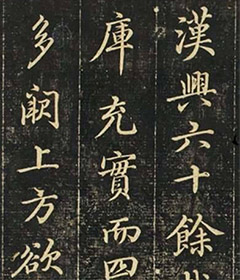 漢興六十餘
庫充實而四
多闕上方欲